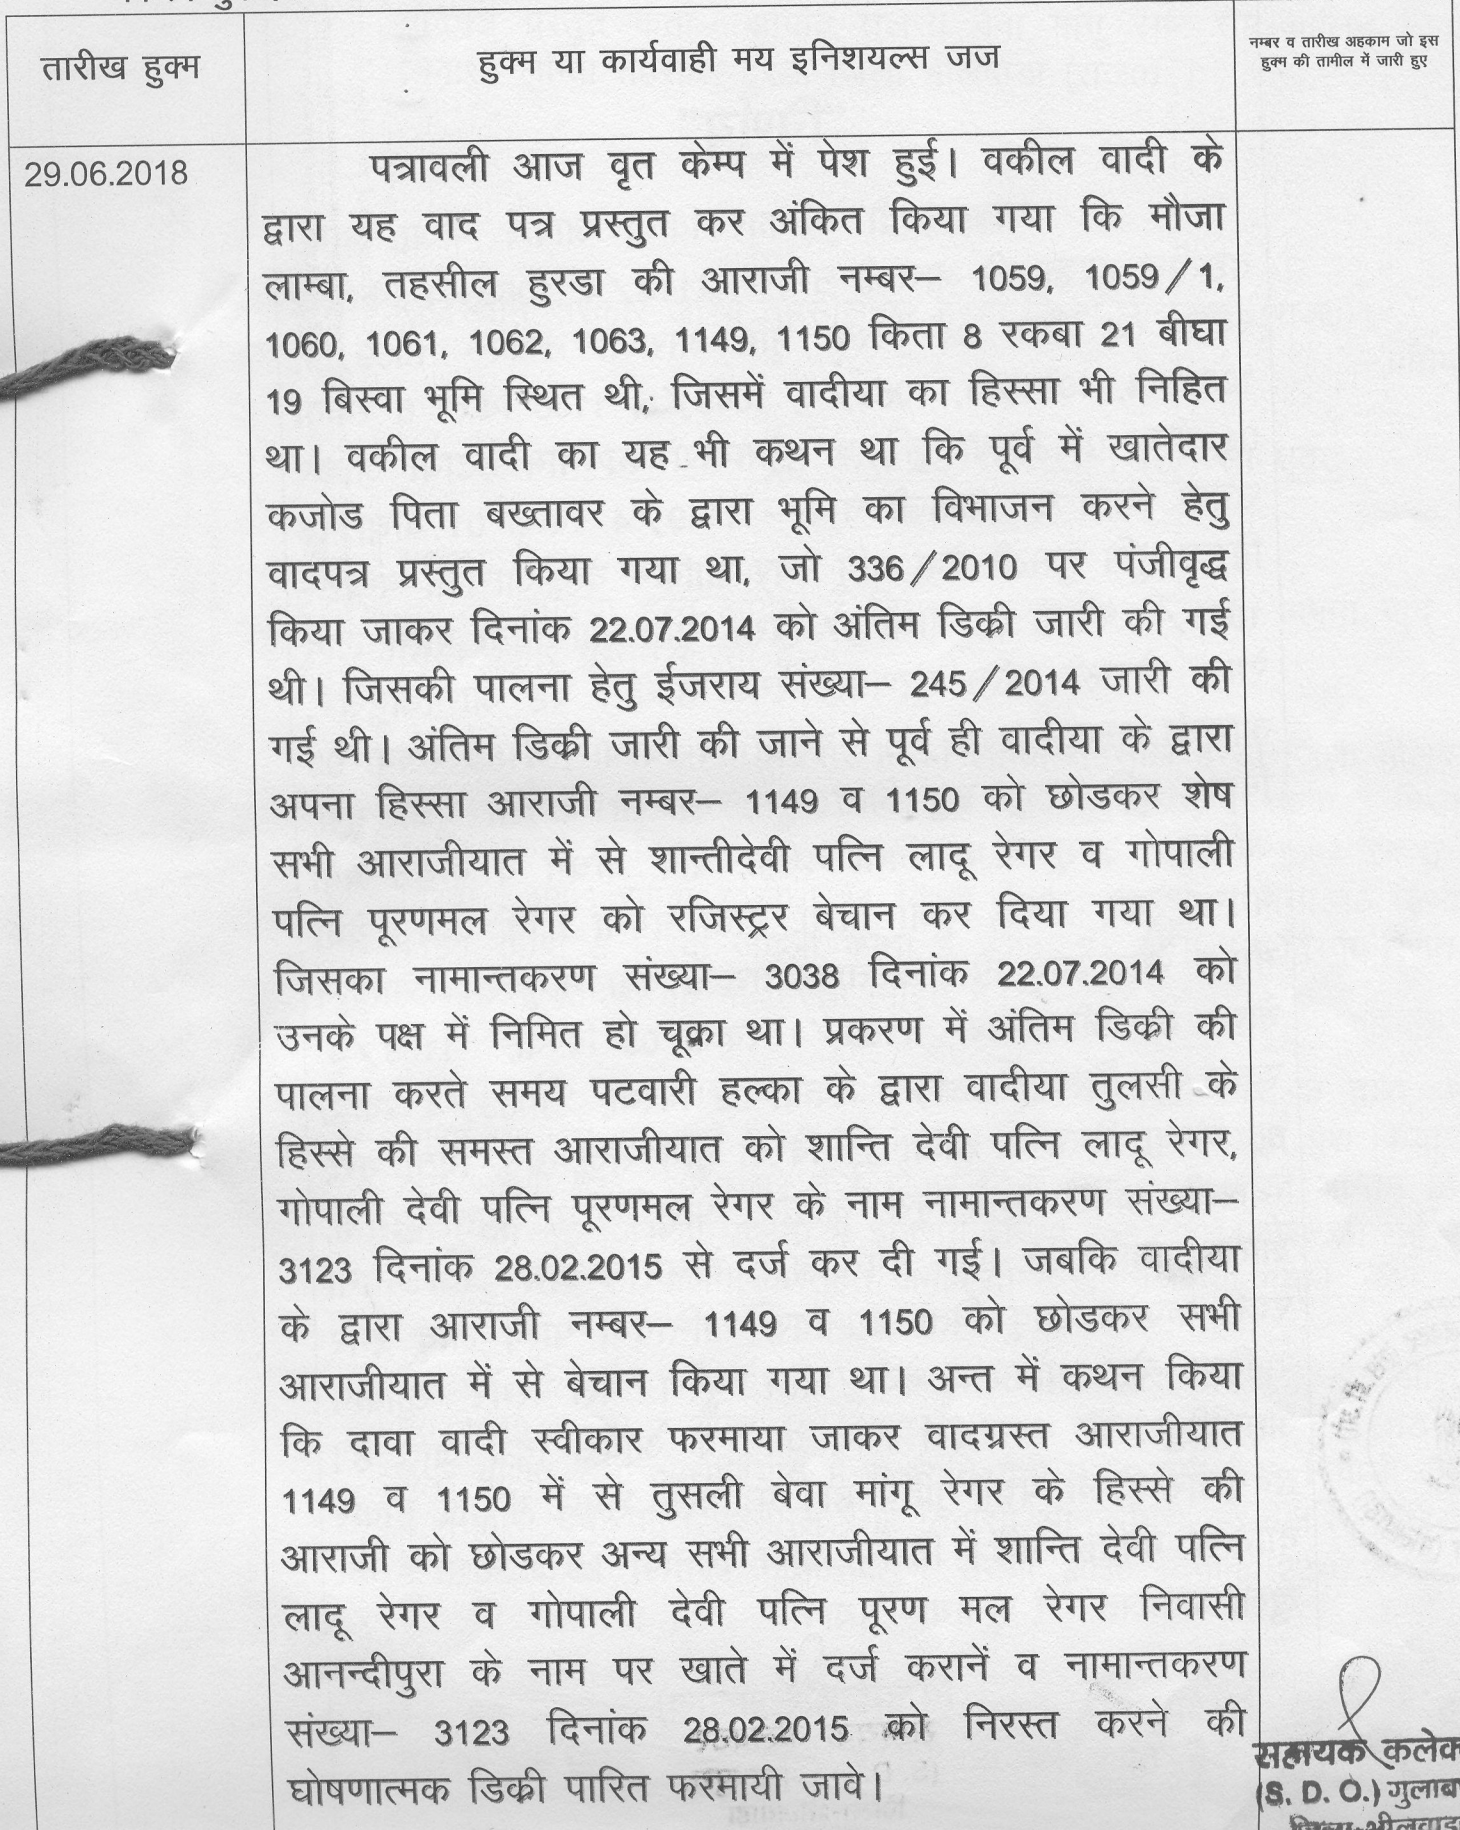 तारीख हुक्म
हुक्म या कार्यवाही मय इनिशयल्स जज
नम्बर व तारीख अहकाम जो इस
हुक्म की तामील में जारी हुए
29.06.2018
पत्रावली आज वृत केम्प में पेश हुई। वकील वादी के
द्वारा यह वाद पत्र प्रस्तुत कर अंकित किया गया कि मौजा
लाम्बा, तहसील हुरडा की आराजी नम्बर– 1059, 1059/1,
1060, 1061, 1062, 1063, 1149, 1150 किता 8 रकबा 21 बीघा
19 बिस्वा भूमि स्थित थी, जिसमें वादीया का हिस्सा भी निहित
था। वकील वादी का यह भी कथन था कि पूर्व में खातेदार
कजोड पिता बख्तावर के द्वारा भूमि का विभाजन करने हेतु
वादपत्र प्रस्तुत किया गया था, जो 336/2010 पर पंजीवृद्ध
किया जाकर दिनांक 22.07.2014 को अंतिम डिक्री जारी की गई
थी। जिसकी पालना हेतु ईजराय संख्या– 245/2014 जारी की
गई थी। अंतिम डिक्री जारी की जाने से पूर्व ही वादीया के द्वारा
अपना हिस्सा आराजी नम्बर– 1149 व 1150 को छोडकर शेष
सभी आराजीयात में से शान्तीदेवी पत्नि लादू रेगर व गोपाली
पत्नि पूरणमल रेगर को रजिस्ट्रर बेचान कर दिया गया था।
जिसका नामान्तकरण संख्या– 3038 दिनांक 22.07.2014 को
उनके पक्ष में निमित हो चूक्रा था। प्रकरण में अंतिम डिक्री की
पालना करते समय पटवारी हल्का के द्वारा वादीया तुलसी के
हिस्से की समस्त आराजीयात को शान्ति देवी पत्नि लादू रेगर,
गोपाली देवी पत्नि पूरणमल रेगर के नाम नामान्तकरण संख्या–
3123 दिनांक 28.02.2015 से दर्ज कर दी गई। जबकि वादीया
के द्वारा आराजी नम्बर– 1149 व 1150 को छोडकर सभी
आराजीयात में से बेचान किया गया था। अन्त में कथन किया
कि दावा वादी स्वीकार फरमाया जाकर वादग्रस्त आराजीयात
1149 व 1150 में से तुसली बेवा मांगू रेगर के हिस्से की
आराजी को छोडकर अन्य सभी आराजीयात में शान्ति देवी पत्नि
लादू रेगर व गोपाली देवी पत्नि पूरण मल रेगर निवासी
आनन्दीपुरा के नाम पर खाते में दर्ज करानें व नामान्तकरण
संख्या– 3123 दिनांक 28.02.2015 को निरस्त करने की
घोषणात्मक डिक्री पारित फरमायी जावे।
सहायक कलेक
(S. D. O.) गुलाब